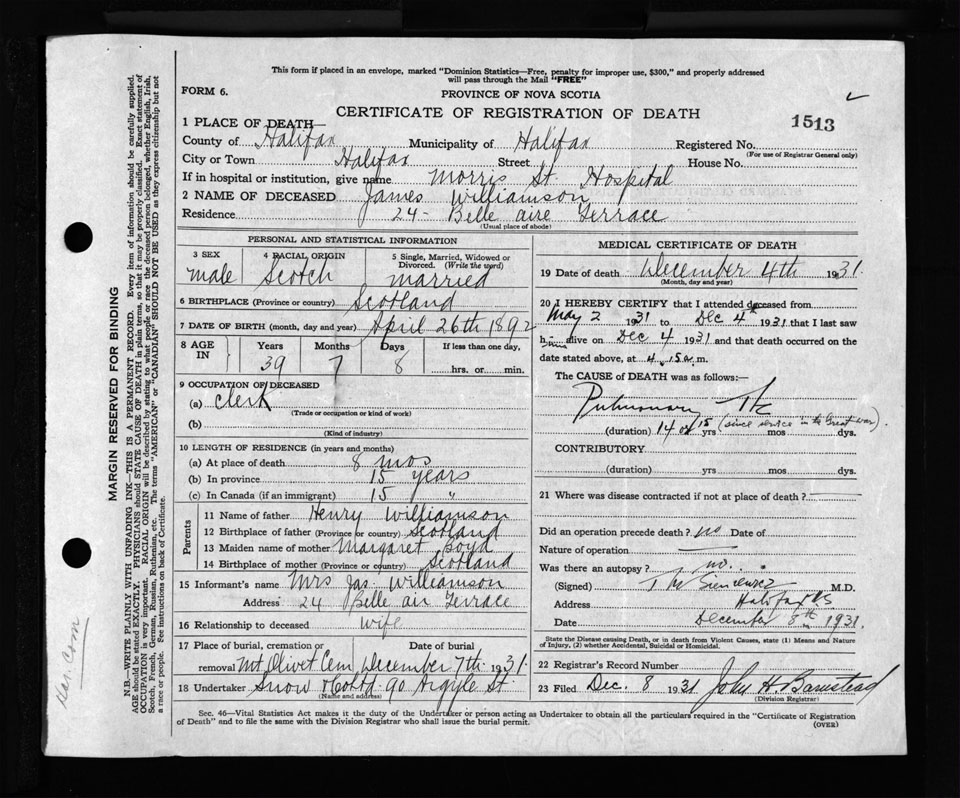 This form if placed in an envelope, marked "Dominion Statistics—Free, penalty for improper use, $300," and properly addressed
will pass through the Mail "FREE"
FORM 6.
PROVINCE OF NOVA SCOTIA
CERTIFICATE OF REGISTRATION OF DEATH
1513
1 PLACE OF DEATH—
County of Halifax Municipality of Halifax Registered No.
(For use of Registrar General only)
City or Town Halifax Street House No.
If in hospital or institution, give name Morris St. Hospital
2 NAME OF DECEASED James Williamson
Residence 24 - Belle aire Terrace
(Usual place of abode)
PERSONAL AND STATISTICAL INFORMATION
3 SEX 4 RACIAL ORIGIN 5 Single, Married, Widowed or
Divorced. (Write the word)
male Scotch married
6 BIRTHPLACE (Province or country) Scotland
7 DATE OF BIRTH (month, day and year) April 26th 1892
8 AGE IN Years Months Days If less than one day,
39 7 8 hrs. or min.
9 OCCUPATION OF DECEASED
(a) Clerk
(Trade or occupation or kind of work)
(b)
(Kind of industry)
10 LENGTH OF RESIDENCE (in years and months)
(a) At place of death 8 mos
(b) In province 15 years
(c) In Canada (if an immigrant) 15 "
Parents
11 Name of father Henry Williamson
12 Birthplace of father (Province or country) Scotland
13 Maiden name of mother Margaret Boyd
14 Birthplace of mother (Province or country) Scotland
15 Informant's name Mrs Jas. Williamson
Address 24 Belle air Terrace
16 Relationship to deceased wife
17 Place of burial, cremation or Date of burial
removal Mt Olivet Cem December 7th 1931.
18 Undertaker Snow & Co Ltd. 90 Argyle St
(Name and address)
MEDICAL CERTIFICATE OF DEATH
19 Date of death December 4th 1931.
(Month, day and year)
20 I HEREBY CERTIFY that I attended deceased from
May 2 1931 to Dec 4th 1931 that I last saw
him alive on Dec 4 1931 and that death occurred on the
date stated above, at 4.15 a.m.
The CAUSE of DEATH was as follows:—
Pulmonary Tbc
(duration) 14 or 15 yrs (since service in the Great War). mos dys.
CONTRIBUTORY
(duration) yrs mos dys.
21 Where was disease contracted if not at place of death?
Did an operation precede death? no Date of
Nature of operation
Was there an autopsy? no.
(Signed) M.D.
Address Halifax NS
Date December 8th 1931.
State the Disease causing Death, or in death from Violent Causes, state (1) Means and Nature
of Injury, (2) whether Accidental, Suicidal or Homicidal.
22 Registrar's Record Number
23 Filed Dec. 8 1931 John H. Barnstead
(Division Registrar)
Sec. 46—Vital Statistics Act makes it the duty of the Undertaker or person acting as Undertaker to obtain all the particulars required in the "Certificate of Registration
of Death" and to file the same with the Division Registrar who shall issue the burial permit.
(OVER)
MARGIN RESERVED FOR BINDING
N.B.—WRITE PLAINLY WITH UNFADING INK—THIS IS A PERMANENT RECORD. Every item of information should be carefully supplied.
AGE should be stated EXACTLY. PHYSICIANS should STATE CAUSE OF DEATH in plain terms, so that it may be properly classified. Exact statement of
OCCUPATION is very important. RACIAL ORIGIN will be described by stating to what people or race the deceased person belonged, whether English, Irish,
Scotch, French, German, Russian, Ruthenian, etc. The terms "AMERICAN" or "CANADIAN" SHOULD NOT BE USED as they express citizenship but not
a race or people. See instructions on back of Certificate.